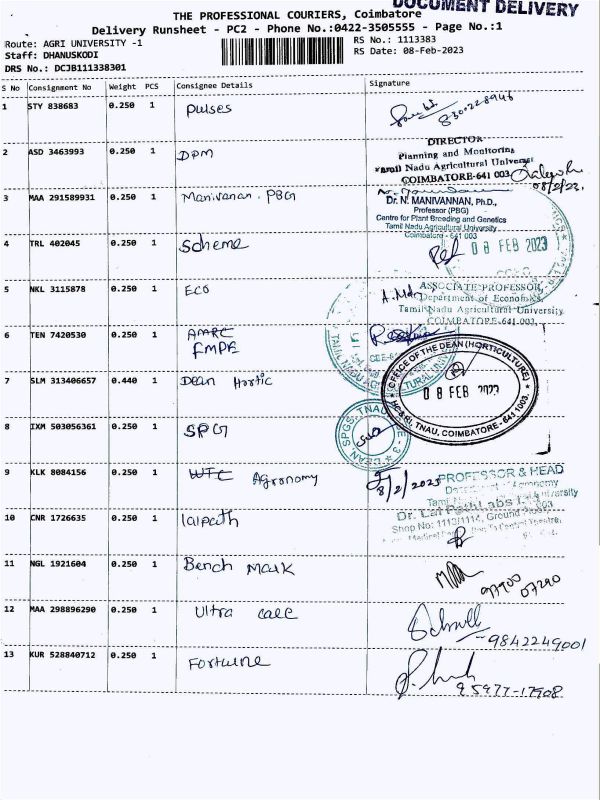 DOCUMENT DELIVERY
THE PROFESSIONAL COURIERS, Coimbatore
Delivery Runsheet - PC2 - Phone No.:0422-3505555 - Page No.:1
Route: AGRI UNIVERSITY -1
RS No.: 1113383
Staff: DHANUSKODI
RS Date: 08-Feb-2023
DRS No.: DCJB111338301
S No Consignment No Weight PCS Consignee Details Signature
1 STY 838683 0.250 1 Pulses
2 ASD 3463993 0.250 1 DPM
DIRECTOR
Planning and Monitoring
Tamil Nadu Agricultural University
COIMBATORE-641 003
3 MAA 291589931 0.250 1 Manivanan. PBG
Dr. N. MANIVANNAN, Ph.D.,
Professor (PBG)
Centre for Plant Breeding and Genetics
Tamil Nadu Agricultural University
Coimbatore - 641 003
4 TRL 402045 0.250 1 Scheme
08 FEB 2023
5 NKL 3115878 0.250 1 ECO
ASSOCIATE PROFESSOR,
Department of Economics,
Tamil Nadu Agricultural University
COIMBATORE-641 003.
6 TEN 7420530 0.250 1 AMRC
FMPE
7 SLM 313406657 0.440 1 Dean Hortic
OFFICE OF THE DEAN (HORTICULTURE)
08 FEB 2023
HC&RI, TNAU, COIMBATORE - 641 003.
8 IXM 503056361 0.250 1 SPG
DEAN SPGS, TNAU
9 KLK 8084156 0.250 1 WTC Agronomy
8/2/2023
PROFESSOR & HEAD
Department of Agronomy
10 CNR 1726635 0.250 1 lalpath
Dr. Lal PathLabs
Shop No: 1113/1114, Ground Floor,
11 NGL 1921604 0.250 1 Bench Mark
97900
07290
12 MAA 298896290 0.250 1 Ultra care
9842249001
13 KUR 528840712 0.250 1 Fortune
95977-17908